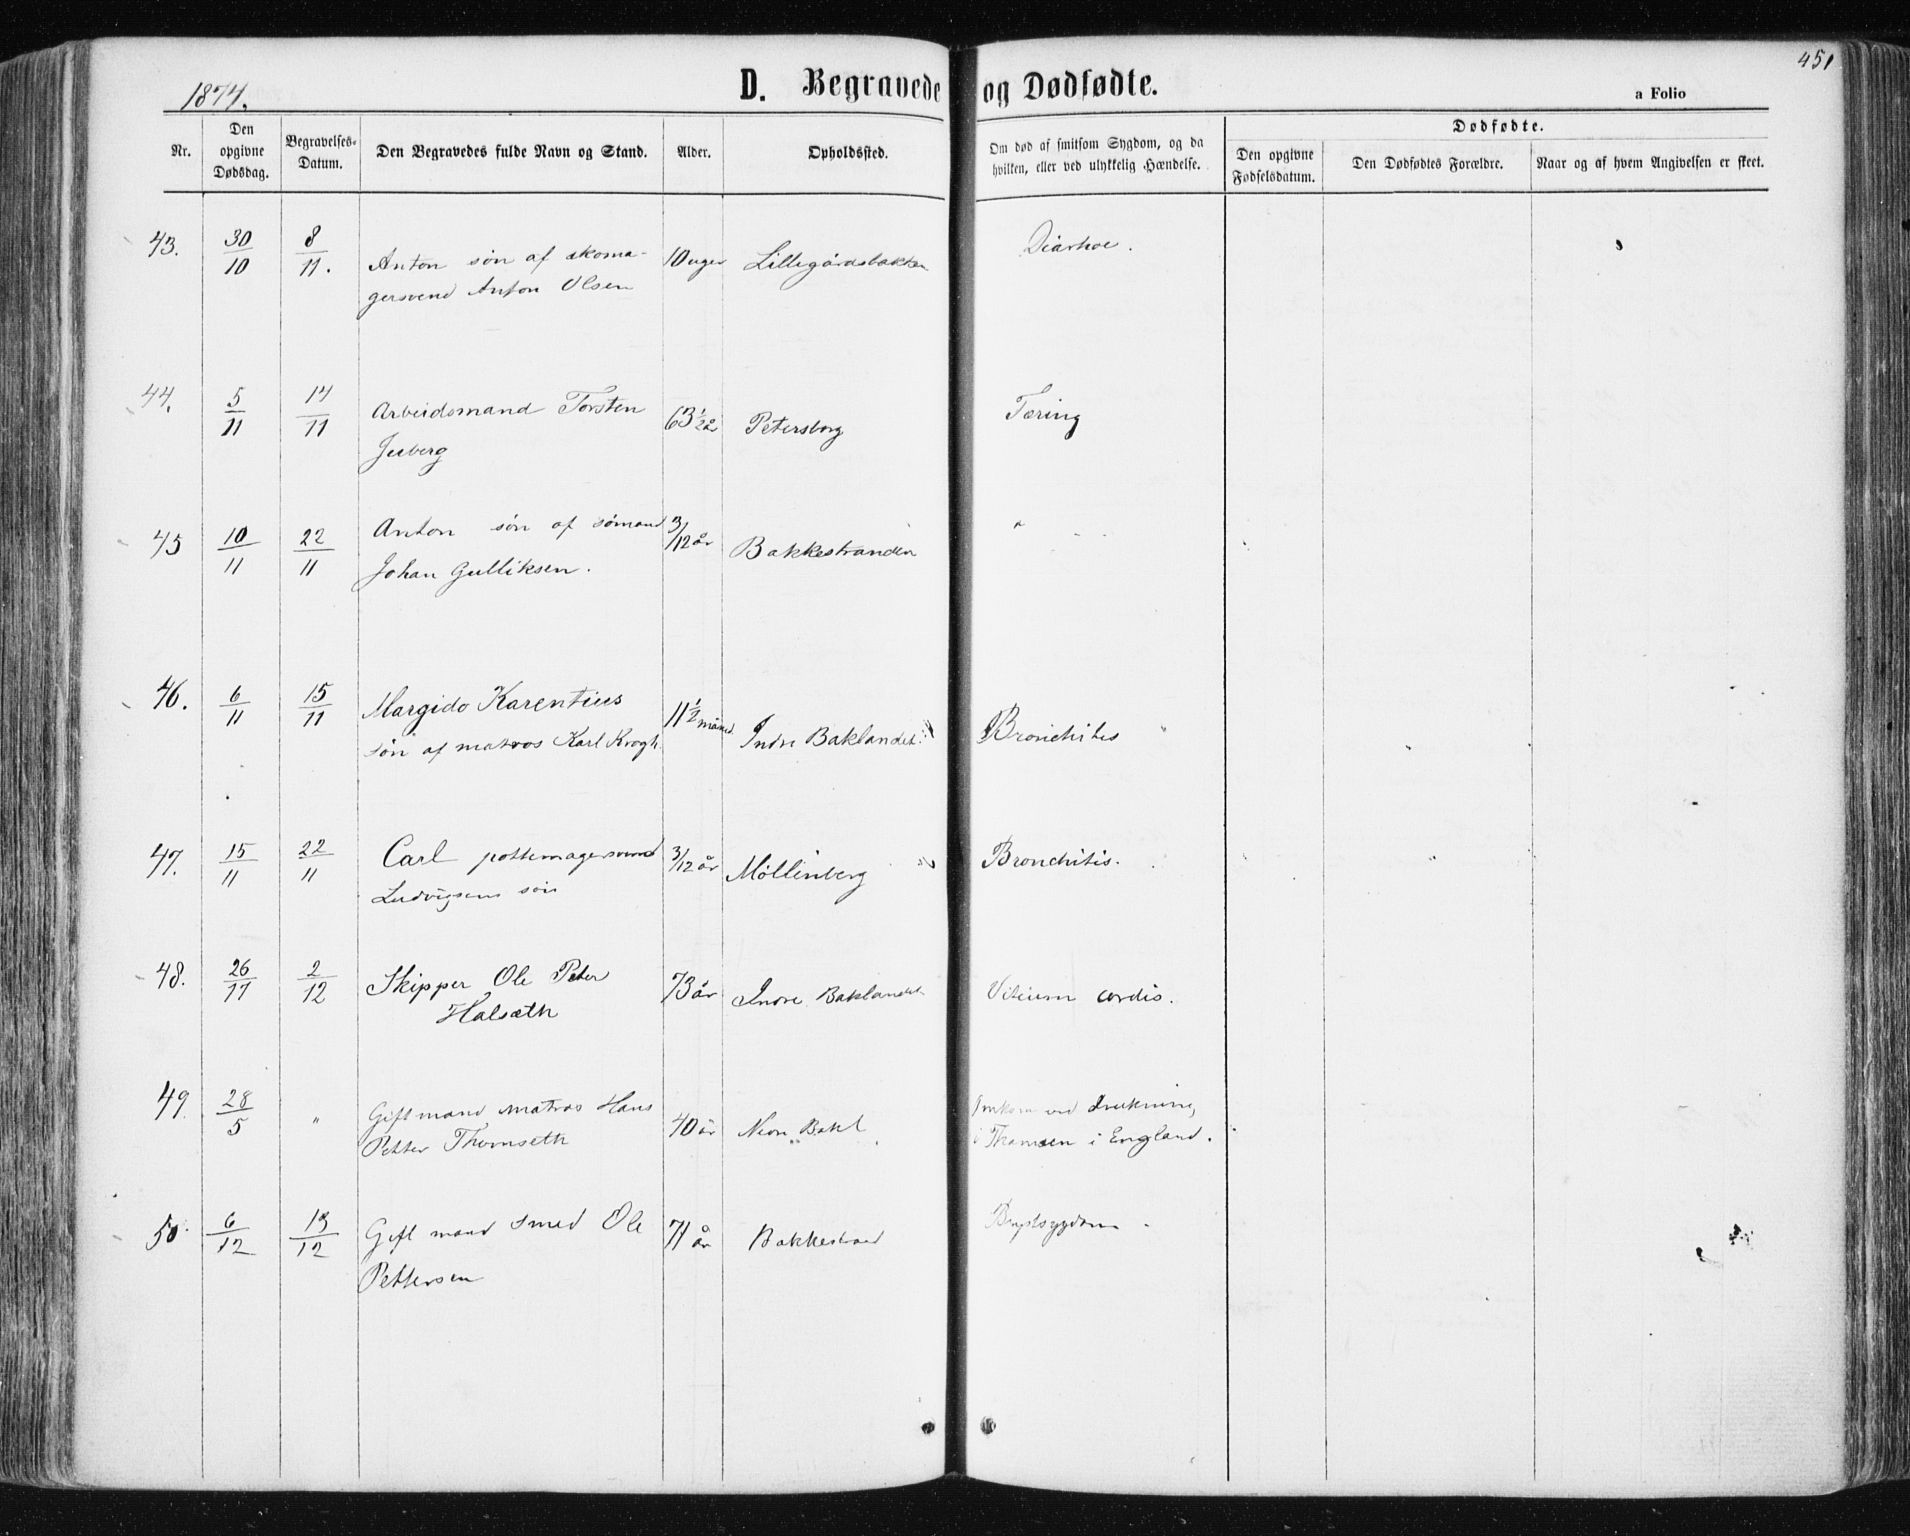 451
1874.
D. Begravede og Dødfødte.
a Folio
Nr.
Den opgivne Dødsdag.
Begravelses-Datum.
Den Begravedes fulde Navn og Stand.
Alder.
Opholdssted.
Om død af smitsom Sygdom, og da
hvilken, eller ved ulykkelig Hændelse.
Dødfødte.
Den opgivne Fødselsdatum.
Den Dødfødtes Forældre.
Naar og af hvem Angivelsen er skeet.
43. 30/10 8/11. Anton søn af skoma- 10 uger Lillegårdsbakken Diarhoe.
gersvend Anton Olsen
44. 5/11 14/11 Arbeidsmand Torsten 63 Petersborg Tæring
Juberg
45 10/11 22/11 Anton søn af sömand 3/12 år Bakkestranden "
Johan Gulliksen.
46. 6/11 15/11 Margido Karentius 11 1/2 måned Indre Baklandet Bronchites
søn af matros Karl Krogh.
47. 15/11 22/11 Carl pottemagersvend 3/12 år Möllenberg Bronchitis.
Ludvigsens søn
48. 26/11 2/12 Skipper Ole Peter 73 år Indre Baklandet Vitium cordis.
Halsæth
49. 28/5 " Gift mand matros Hans 40 år Nedre Bakl. Omkom ved drukning
Petter Thomseth i Thamsen i England.
50. 6/12 13/12 Gift mand smed Ole 71 år Bakkestrand Brystsygdom
Pettersen